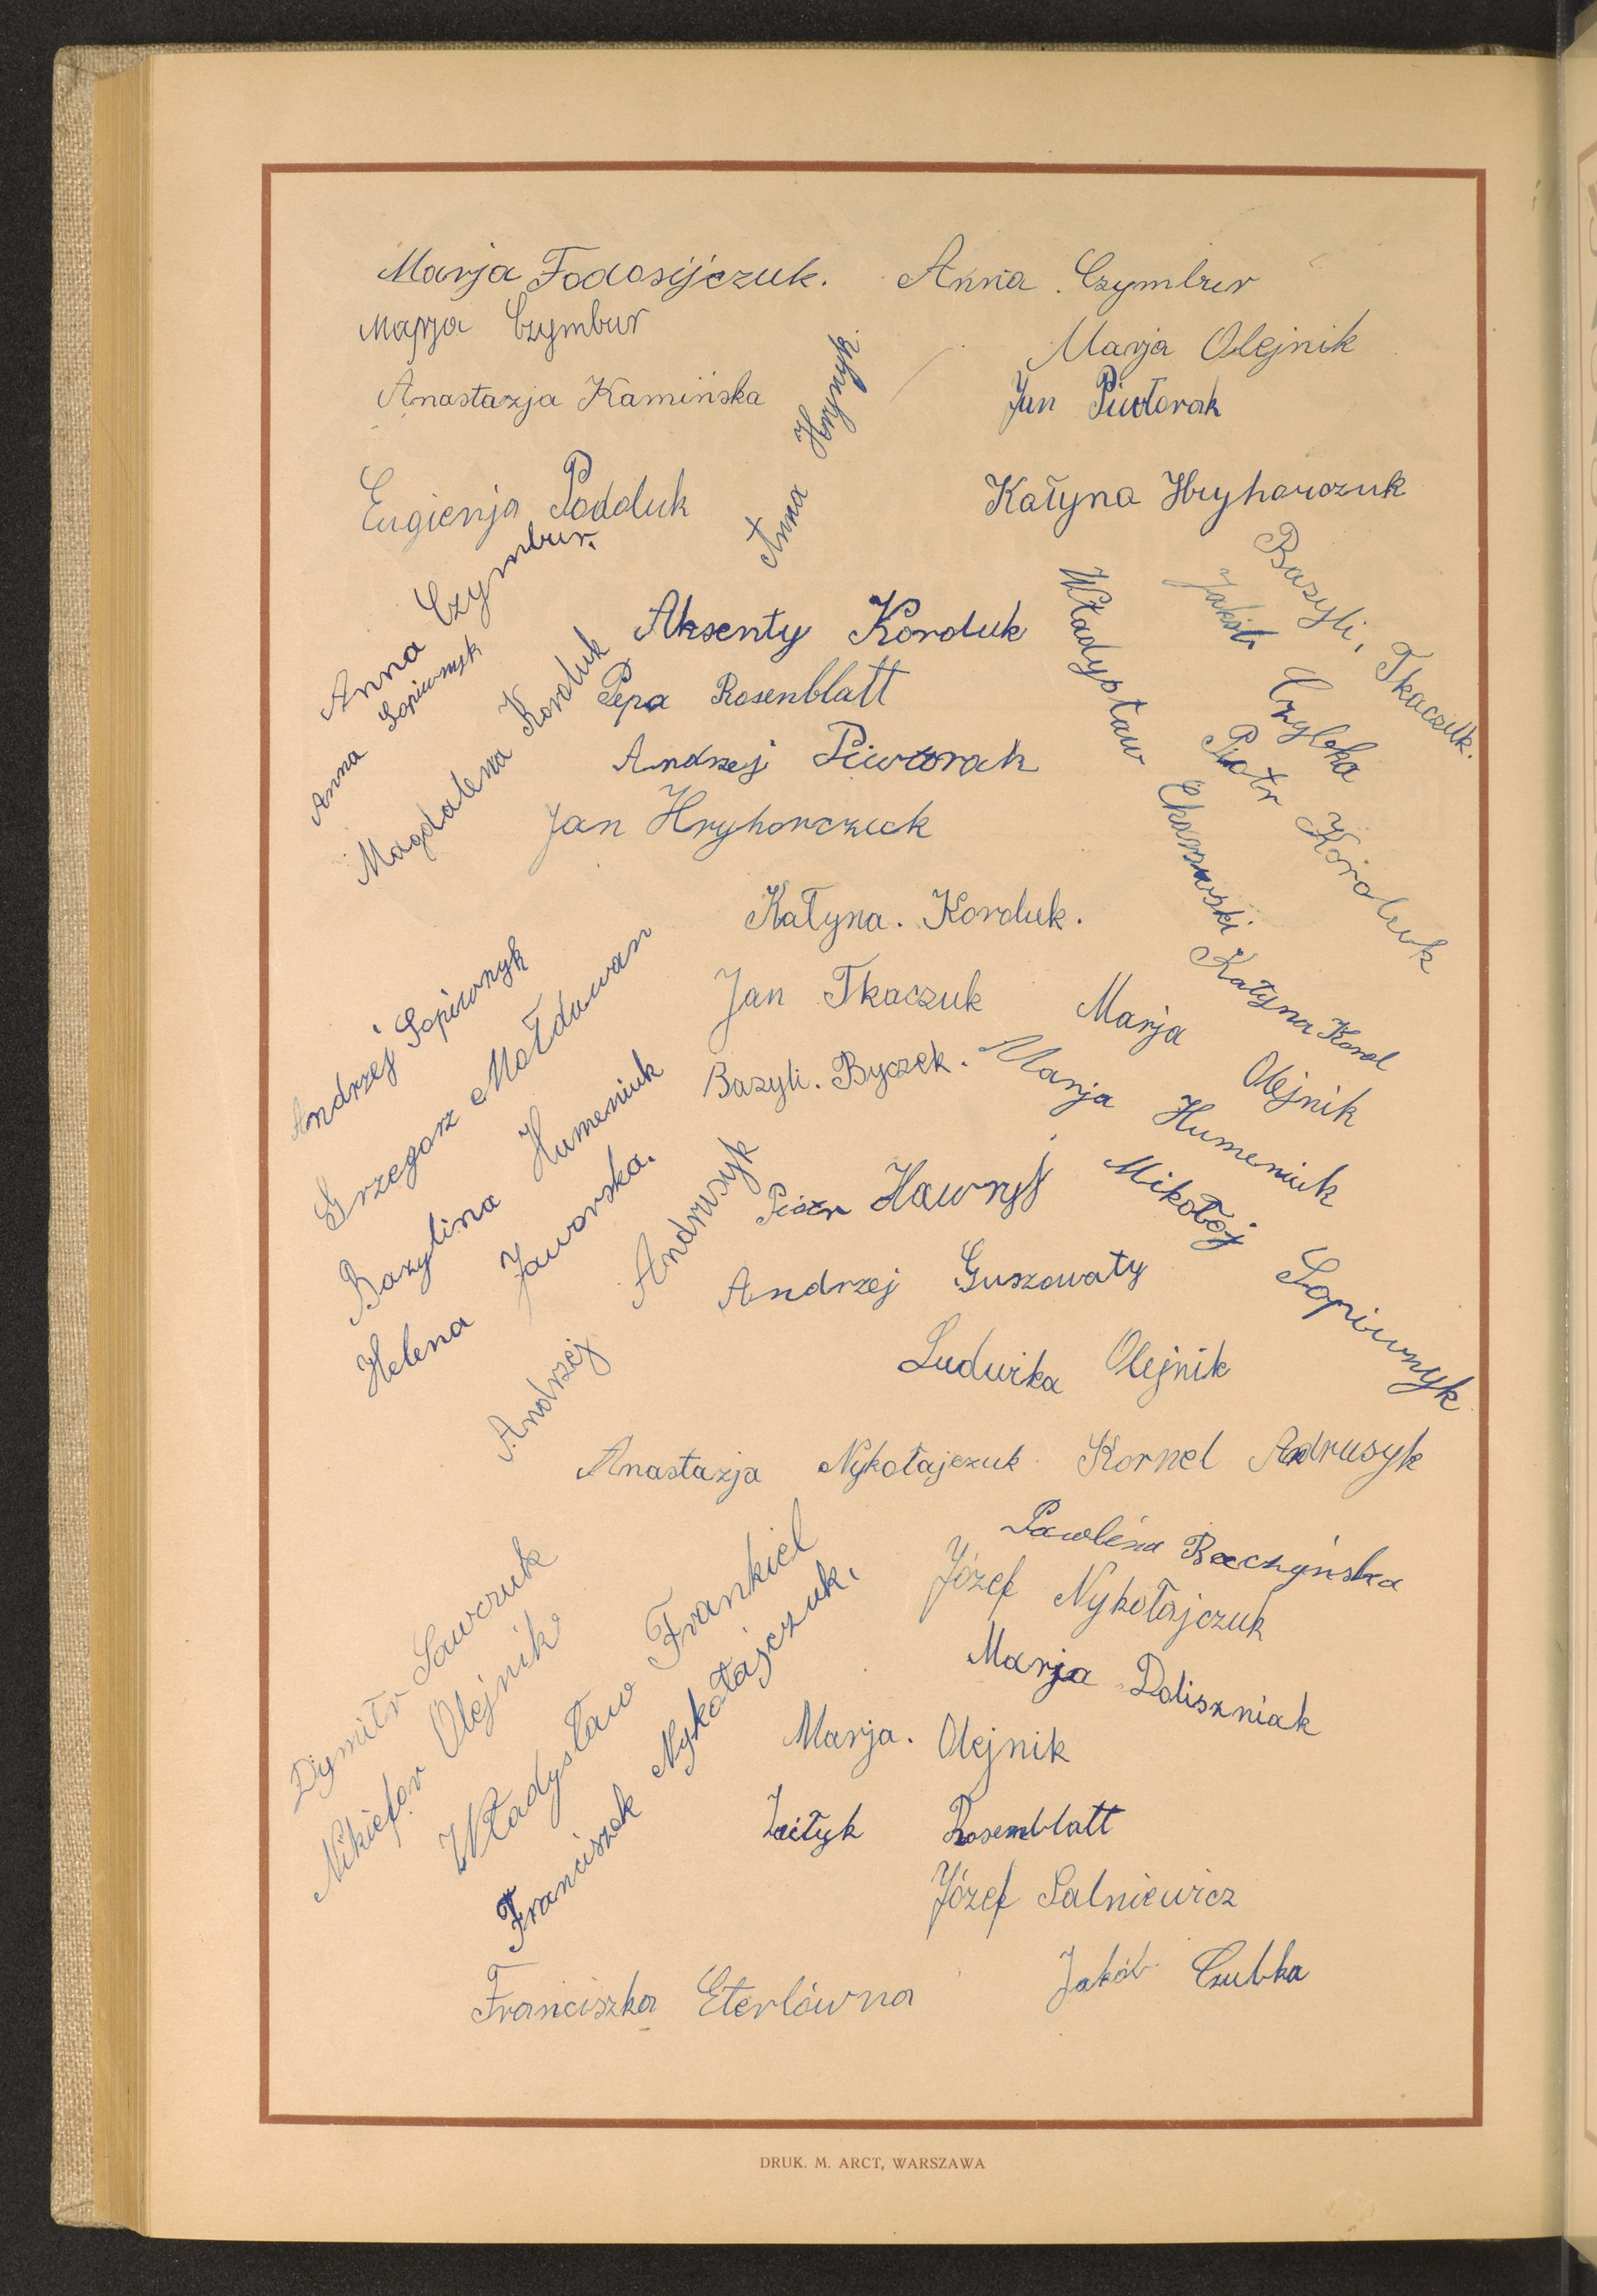 Marja Fodosijczuk. Anna Czymbur
Marja Czymbur
Marja Olejnik
Anastazja Kamińska
Jan Piwtorak
Anna Hrynyk.
Eugienja Podoluk
Katyna Hryhorczuk
Anna Czymbur.
Anna Sopiwnyk
Magdalena Korduk
Aksenty Korduk
Pepa Rosenblatt
Andrzej Piwtorak
Jan Hryhorczuk
Władysław
Bazyli, Tkaczuk.
Jakób Czybka
Piotr Koroluk
Katyna. Korduk.
Katyna Korol
Jan Tkaczuk
Marja Olejnik
Bazyli. Byczek.
Marja Humeniuk
Andrzej Sopiwnyk
Grzegorz Mołdawan
Bazylina Humeniuk
Helena Jaworska.
Andrzej Andrusyk
Piotr Hawryś
Mikołaj Sopiwnyk
Andrzej Guszowaty
Ludwika Olejnik
Anastazja Nykołajczuk
Kornel Andrusyk
Pawlina Raczyńska
Józef Nykołajczuk
Marja Doliszniak
Dymitr Sawczuk
Nikiefor Olejnik
Władysław Frankiel
Franciszek Nykołajczuk.
Marja. Olejnik
Rosemblatt
Józef Salniewicz
Jakób Czubka
Franciszka Eterlówna
DRUK. M. ARCT, WARSZAWA